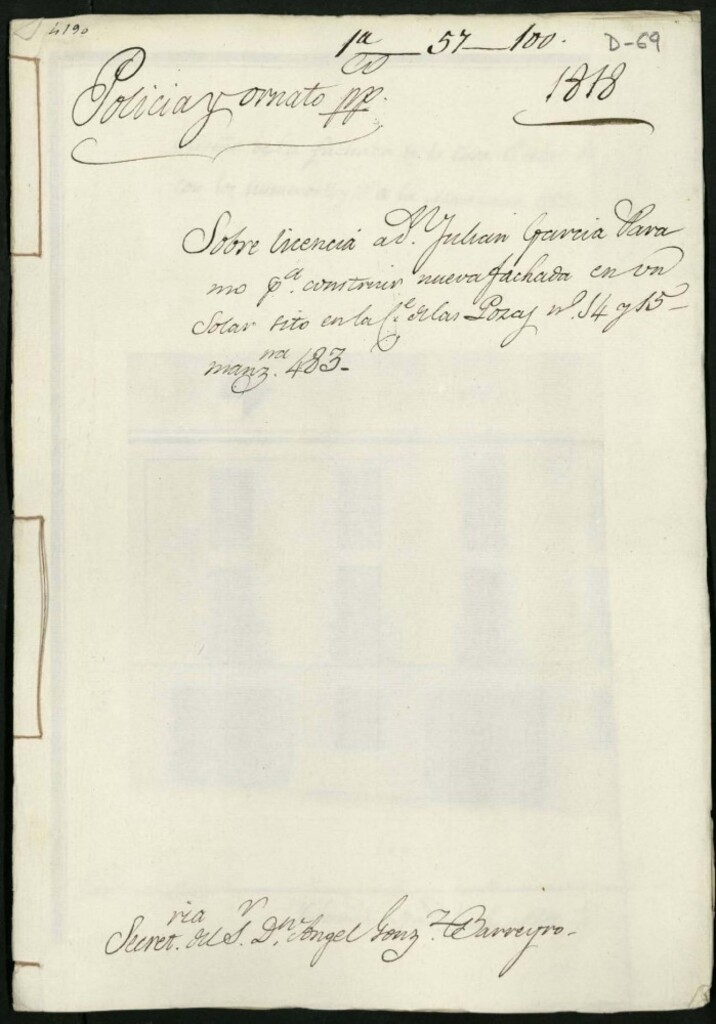 4190
1ª — 57 — 100.
D-69
Policia y ornato pp.co
1818
Sobre licencia a Dn. Julian Garcia Para
mo pa. construir nueva fachada en un
Solar sito en la Ce. de las Pozas no. 14 y 15-
manzna. 483-
Secretria. del Sr. Dn. Angel Gonzz. Barreyro-